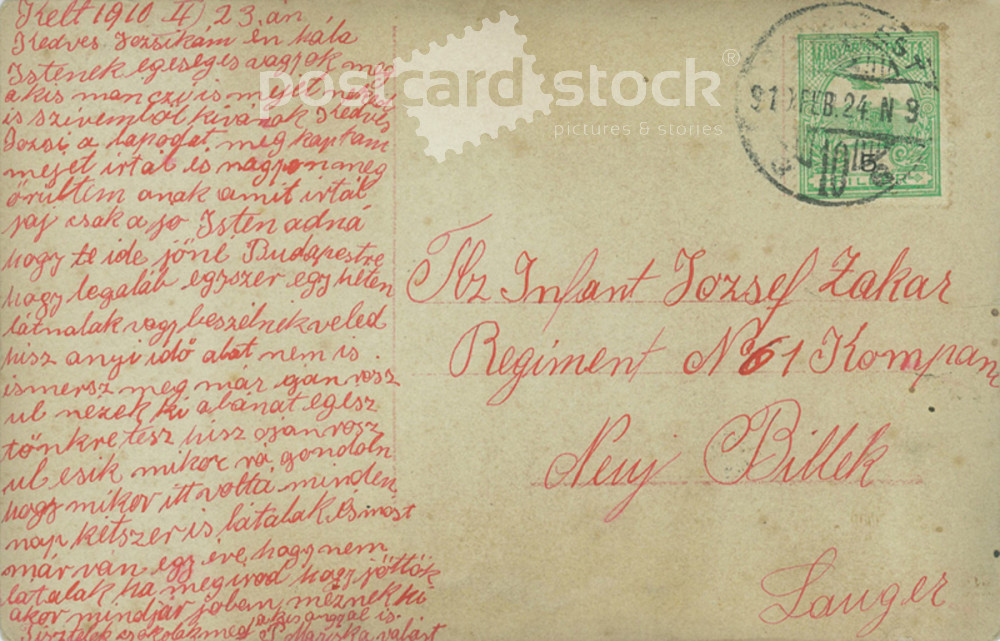 Kelt 1910 II 23.án
Kedves Jozsikám én hála
Istenek egeséges vagyok meg
a kis manczi is mejet neked
is szivemből kivánok Kedves
Jozsi a lapodat meg kaptam
mejet irtál és nagyon meg
örültem anak amit irtál
jaj csak a jo Isten adná
hogy te ide jönél Budapestre
hogy legaláb egyszer egy héten
látnálak vagy beszélnék veled
hisz anyi idő alat nem is
ismersz meg már ojan rosz
ul nézek ki a bánat egész
tönkre tesz hisz ojan rosz
ul esik mikor rá gondoln
hogy mikor itt voltá minden
nap kétszer is látalak és most
már van egy éve hogy nem
látalak ha megirod hogy jöttök
akor mindjár joban néznék ki
Tisztelek csokolak meg a kis angyal is.
Mariska
postcardstock®
pictures & stories
MAGYAR
910 FEB. 24. N 9
10
5
Infant Jozsef Zakar
Regiment No 61 Kompan
Neuj Billek
Lauger